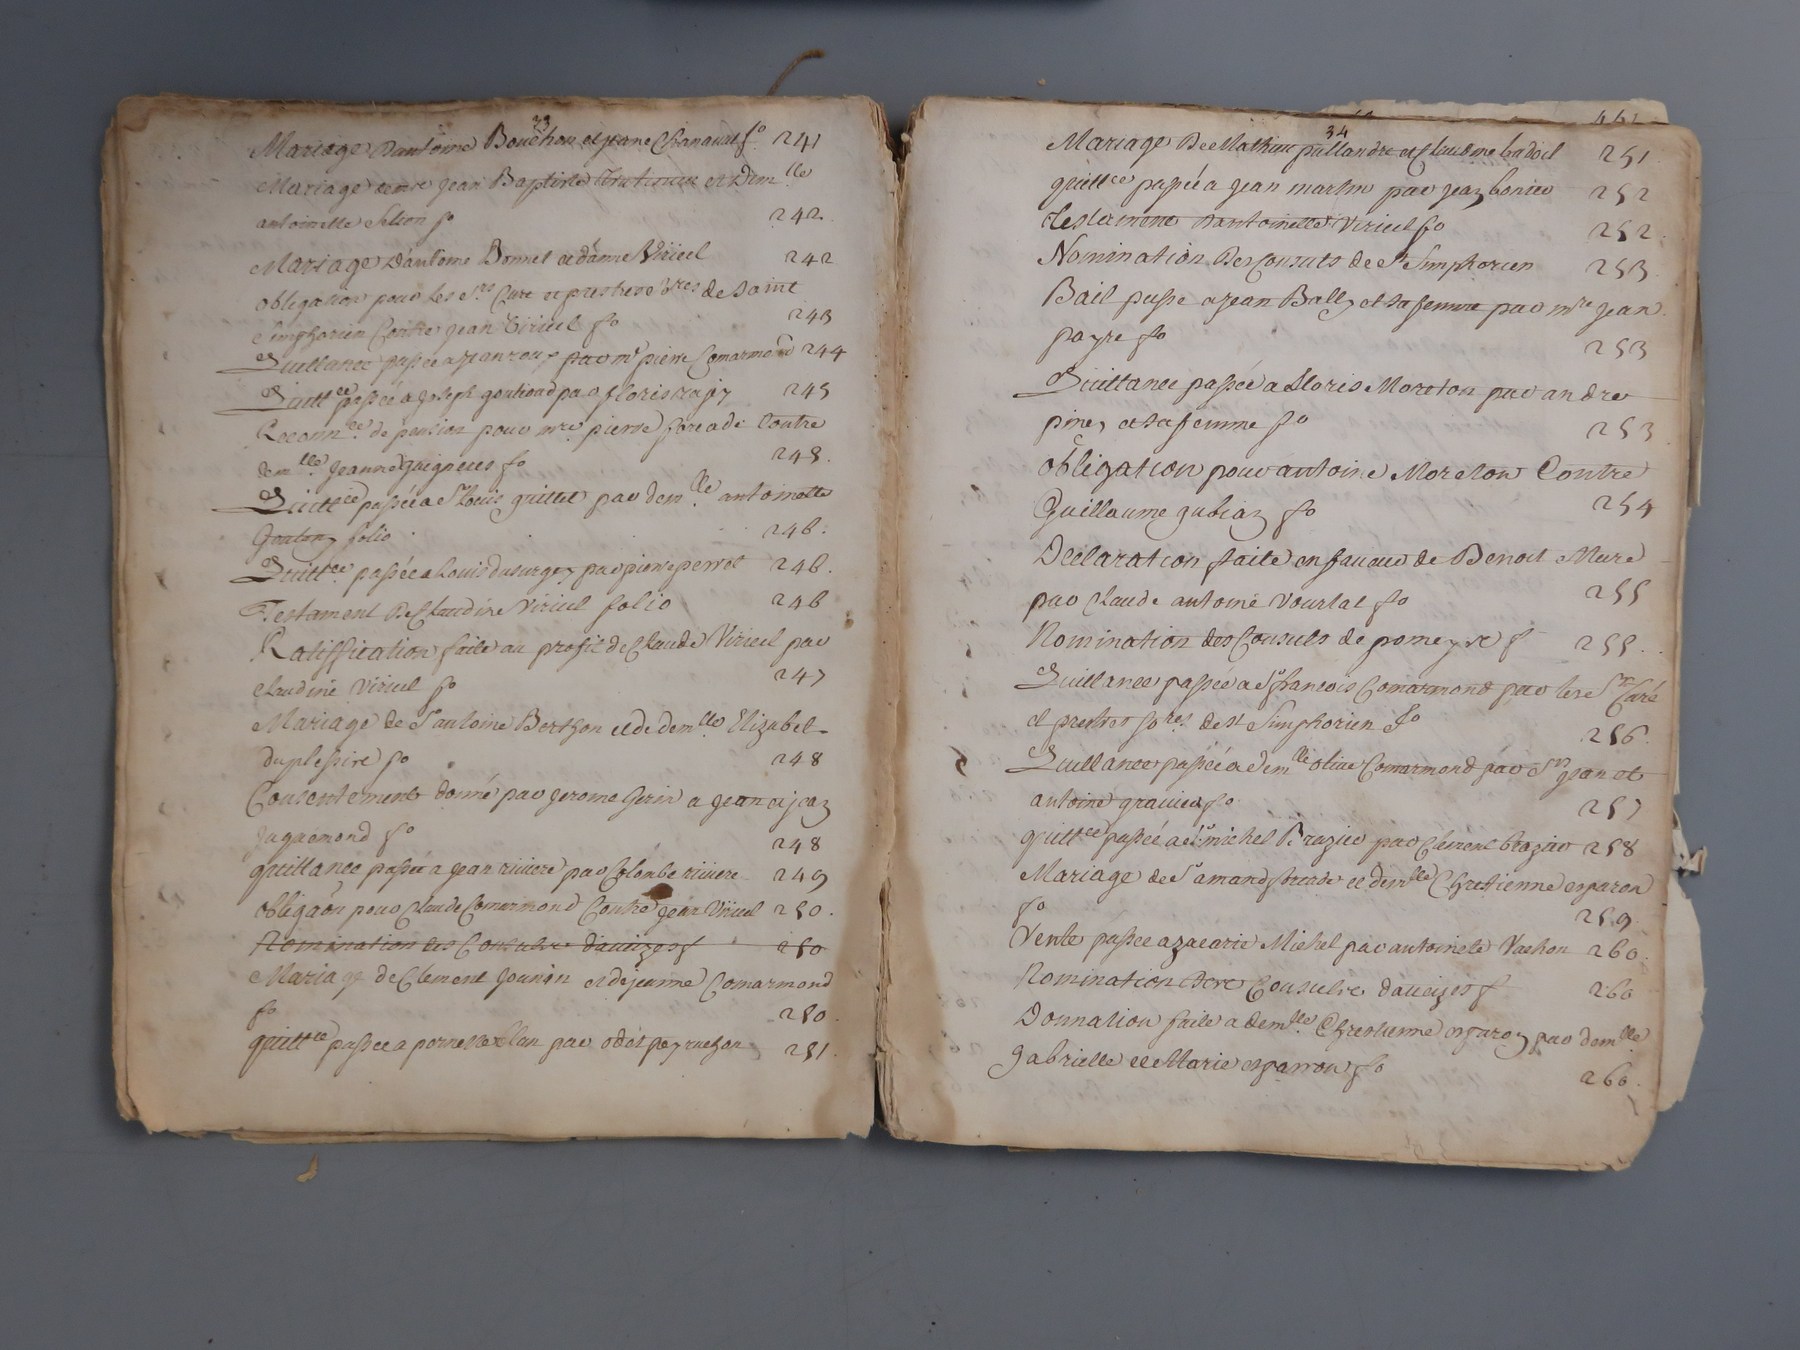 33
Mariage Dantoine Bouchon et jeane Chanavat fo 241
Mariage entre jean Baptiste et Dem.lle
antoinette fo 242.
Mariage Dantoine Bonnet et danne Virieul 242
obligation pour les Srs Curé et prestres de Saint
Simphorien Contre jean Virieul fo 243
Quittance passée a jean roux par mr pierre Comarmond 244
Quittce passée a joseph goutiond par floris 245
Reconnce de pension pour mre pierre Contre
dem.lle jeanne fo 245.
Quittce passée a Sr Louis guittet par dem.lle antoinette
folio 246.
Quittce passée a Louis Dusurgey par pierre perrot 246.
Testament De Claudine Virieul folio 246
Ratiffication faite au profit de Claude Virieul par
claudine Virieul fo 247
Mariage de Sr antoine Berthon et de dem.lle Elizabet
duplessire fo 248
Consentement donné par jerome Gerin a jean
jaquemond fo 248
quittance passée a jean riviere par Colombe riviere 249
obligaon pour Claude Comarmond Contre jean Virieul 250.
Nomination des Consulre daveizes f 250
Mariage de Clement jounin et de jeanne Comarmond
fo 250.
quittce passée a par odet peyrachon 251.
34
Mariage De Mathieu et Claudine 251
quittce passée a jean martin par jean 252
Testament Dantoinette Virieul fo 252.
Nomination Des Consuls de St Simphorien 253.
Bail passe a jean Bally et sa femme par mre jean
payre fo 253
Quittance passée a floris Moreton par andre
piney et sa femme fo 253
obligation pour antoine Moreton Contre
Guillaume gubian fo 254
Declaration faite en faveur de Benoit Mure
par Claude antoine Vourlat fo 255
Nomination des Consuls de pomeys f 255.
Quittance passée a Sr francois Comarmond par les Srs Curé
et prestres de St Simphorien fo 256.
Quittance passée a dem.lle olive Comarmond par Srs jean et
antoine fo 257
quittce passée a Sr michel Brazier par Clement brazier 258
Mariage de Sr amand et dem.lle Chretienne esparon
fo 259.
Vente passée a zacarie Michel par antoinete Vachon 260.
Nomination Consulre daveizes f 260
Donnation faite a dem.lle Chrestienne esparon par dem.lle
gabrielle et Marie esparron fo 260.